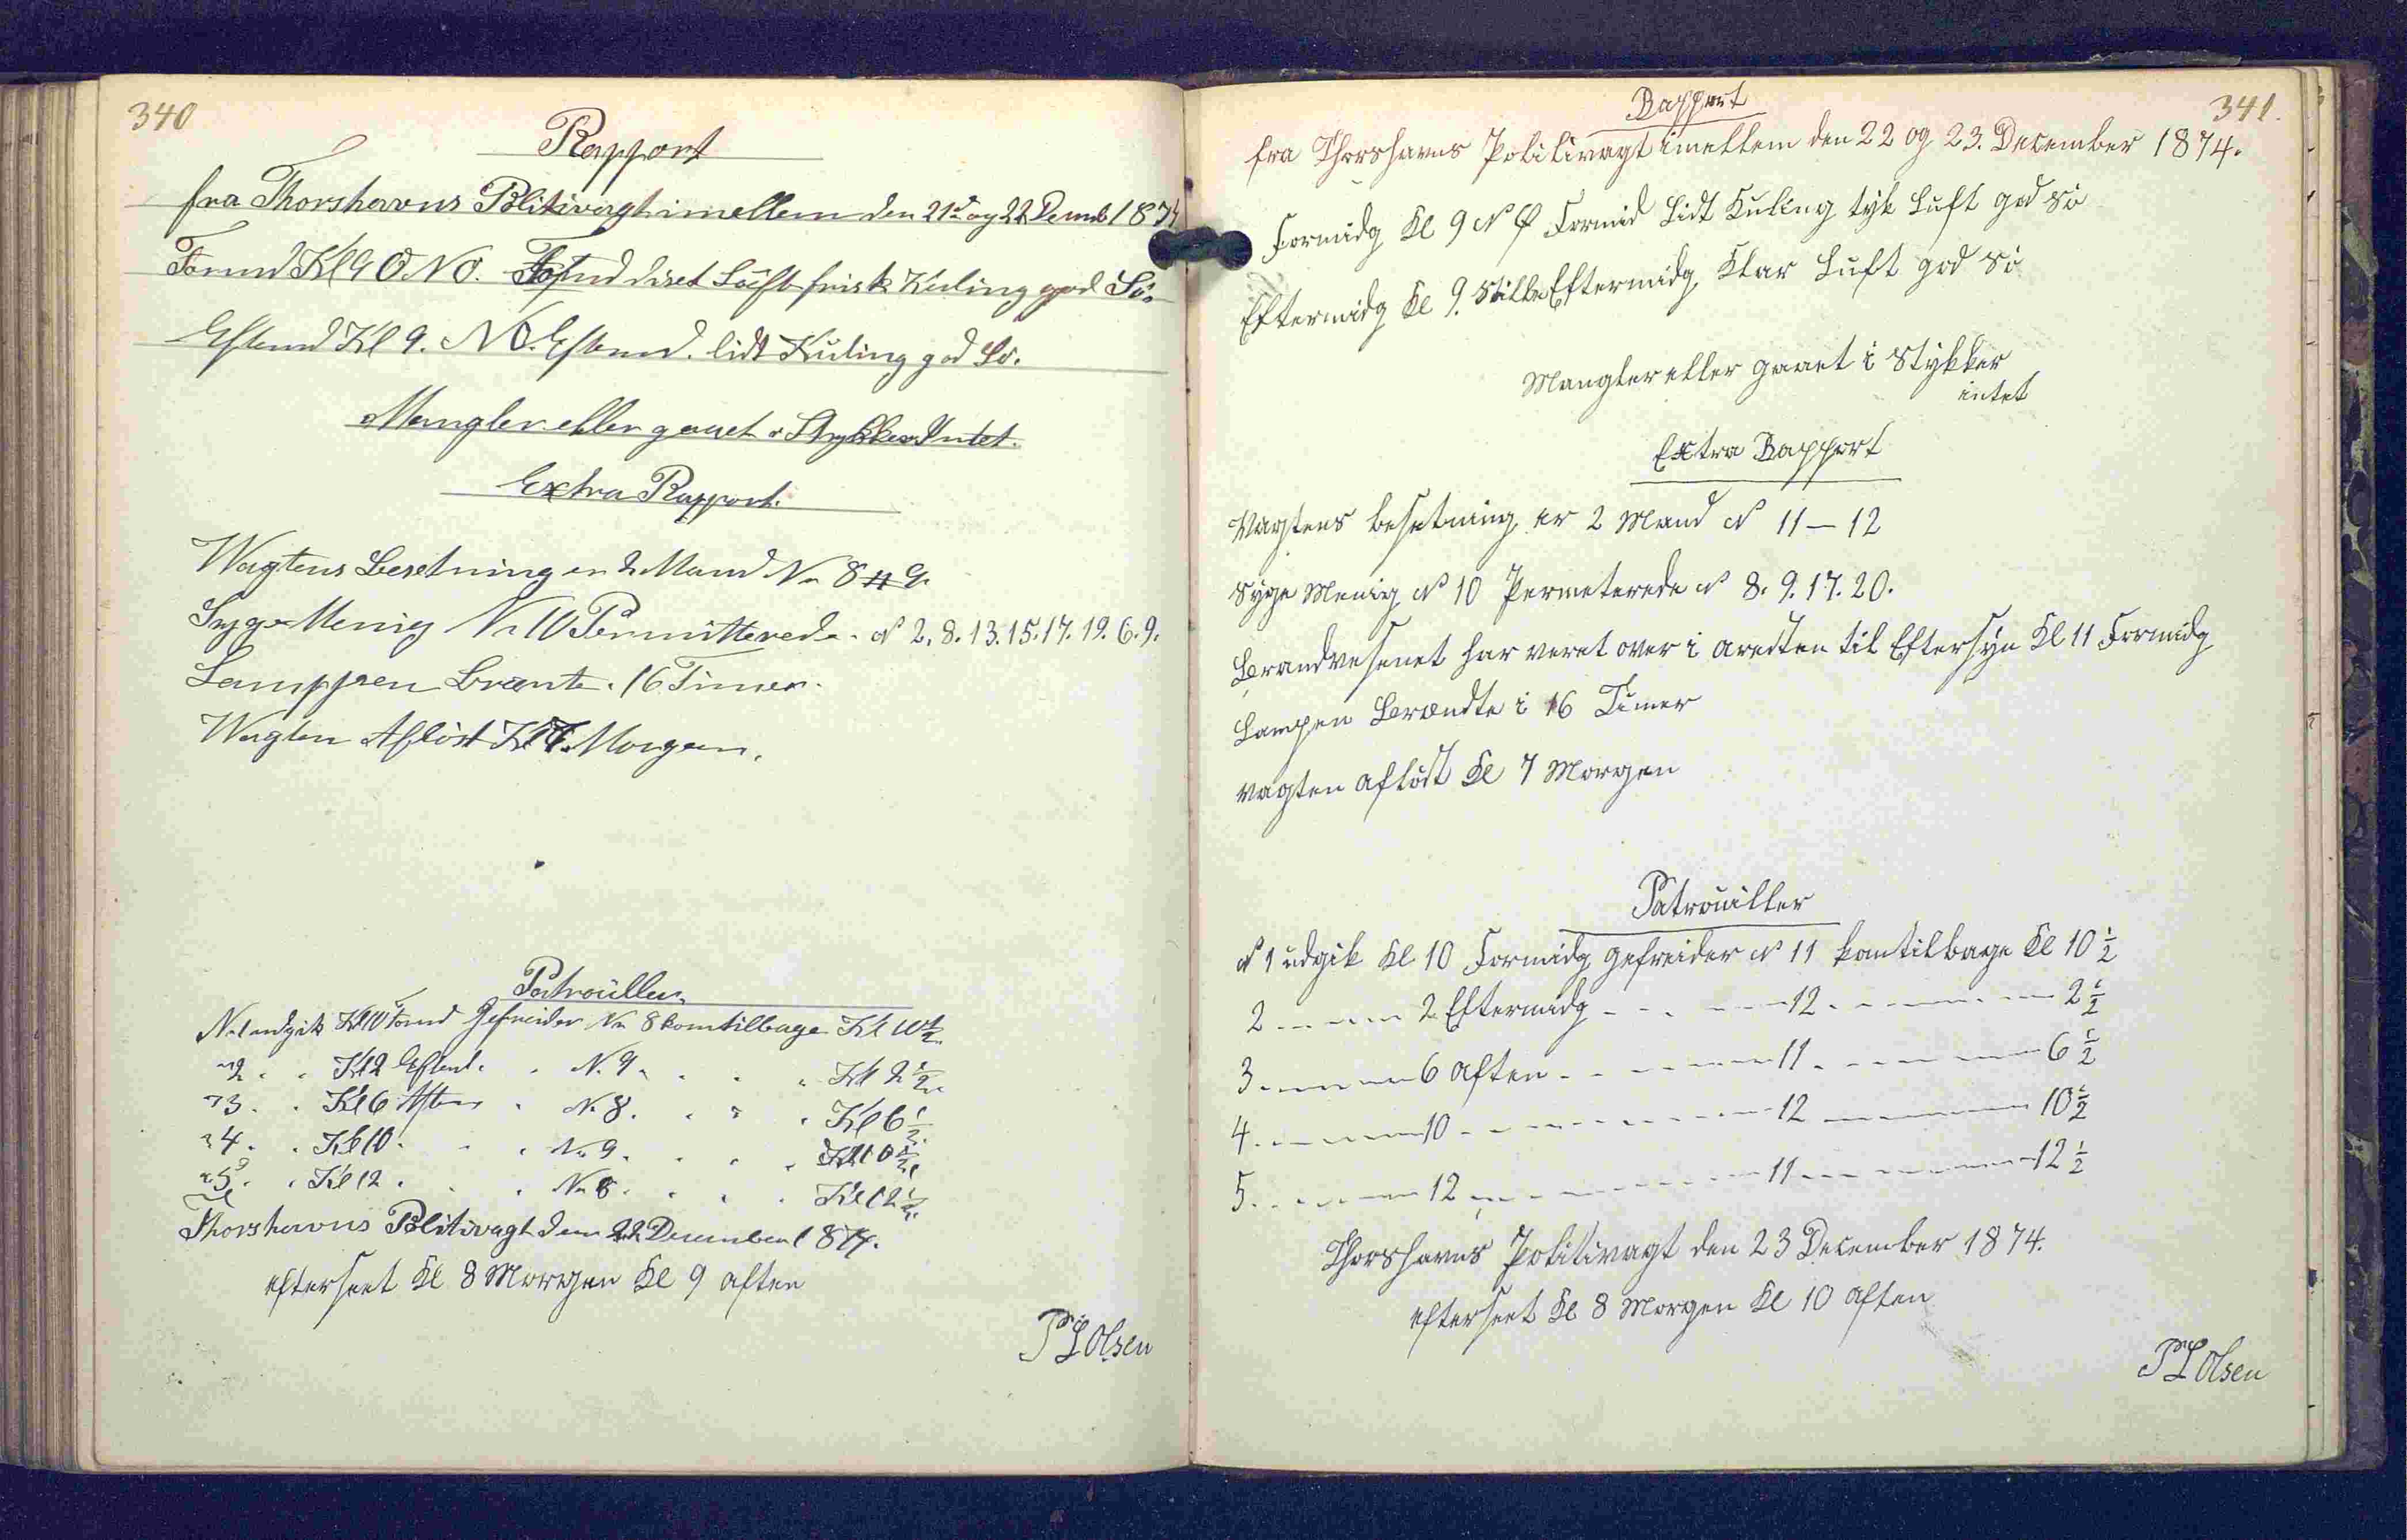 340
Rapport
fra Thorshavns Politivagt imellem den 21d og 22 Decemb 1874
Formd Kl 9 O.N.O. Formd diset Luft frisk Kuling god Sö.
Eftemd Kl 9. NO. Eftemd. lidt Kuling god Sö.
Mangler eller gaaet i Stykker Intet.
Extra Rapport.
Wagtens Besetning er 2 Mand No 8 9.
Syge Menig No 10 Permitterede. No 2. 8. 13. 15. 17. 19. 6. 9.
Lamppen Brænte. 16 Timer.
Wagten Aflöst Kl 7 Morgen.
Patrouller
No 1 udgik Kl 10 Formd Gefreider No 8 kom tilbage Kl 10 1/2
" 2 . . Kl 2 Eftemd. . No 9 . . . . Kl 2 1/2
" 3 . . Kl 6 Aften . No 8 . . . . Kl 6 1/2
" 4 . . Kl 10 . . . No 9 . . . . Kl 10 1/2
" 5 . . Kl 12 . . . No 8 . . . . Kl 12 1/2
Thorshavns Politivagt den 22 December 1874.
efterseet Kl 8 Morgen Kl 9 Aften
P L Olsen
341.
Rapport
fra Thorshavns Politivagt imellem den 22 og 23. December 1874.
Formidg Kl 9 N Ø Formid Lidt Kuling tyk Luft god Sö
Eftermidg Kl 9. Stille Eftermidg Klar Luft god Sö
Mangler eller gaaet i Stykker
intet
Extra Rapport
Vagtens besetning er 2 Mand No 11 — 12
Syge Menig No 10 Permeterede No 8. 9. 17. 20.
Brandvesenet har veret over i Aresten til Eftersyn Kl 11 Formidg
Lampen Brændte i 16 Timer
Vagten aflöst Kl 7 Morgen
Patrouiller
No 1 udgik Kl 10 Formidg Gefreider No 11 kom tilbage Kl 10 1/2
2 - - - - 2 Eftermidg - - - - 12 - - - - - 2 1/2
3 - - - - 6 Aften - - - - 11 - - - - - 6 1/2
4 - - - - 10 - - - - - - 12 - - - - - 10 1/2
5 - - - - 12 - - - - - - 11 - - - - - 12 1/2
Thorshavns Politivagt den 23 December 1874.
efterseet Kl 8 Morgen Kl 10 Aften
P L Olsen